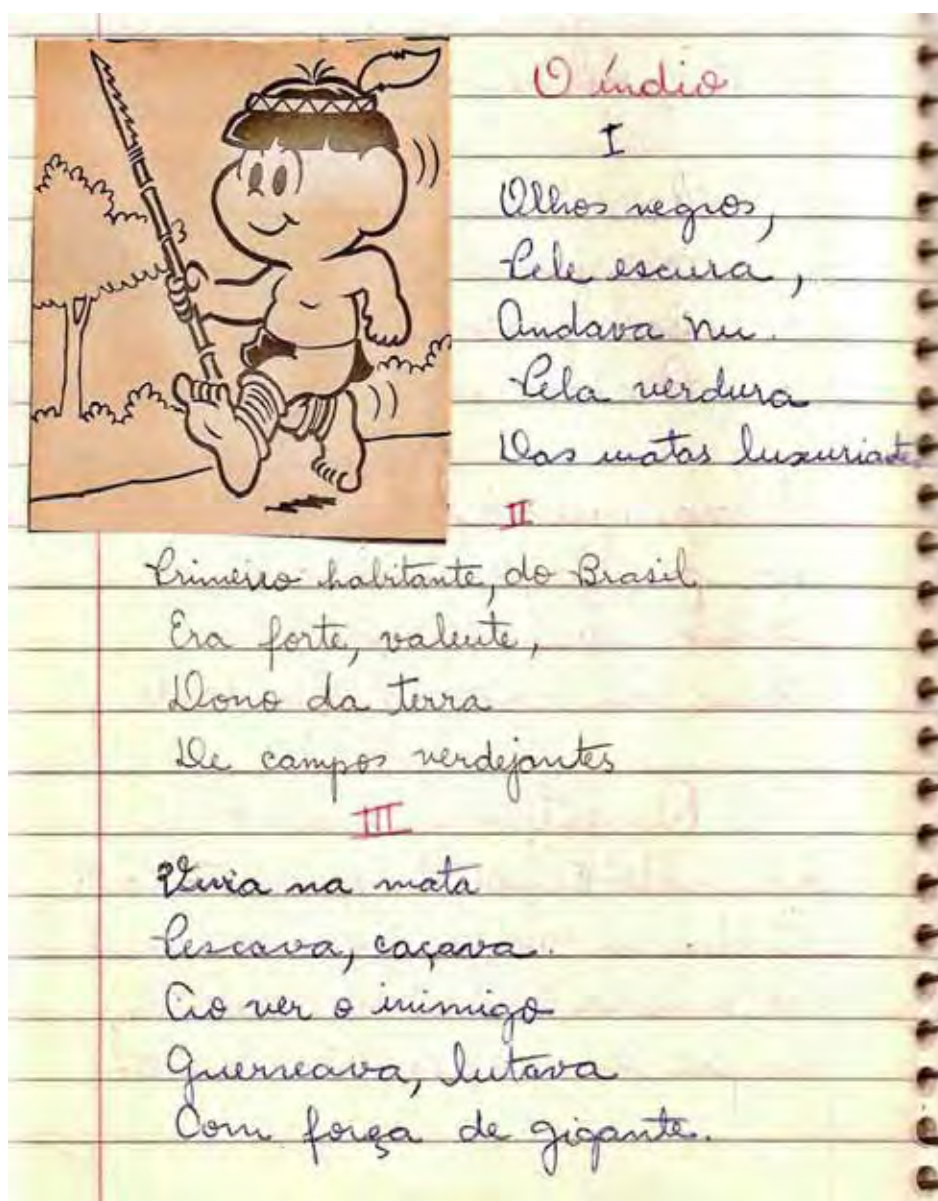 O índio
I
Olhos negros,
Pele escura,
Andava nu.
Pela verdura
Das matas luxuriantes
II
Primeiro habitante, do Brasil
Era forte, valente,
Dono da terra
De campos verdejantes
III
Vivia na mata
Pescava, caçava.
Ao ver o inimigo
Guerreava, lutava
Com força de gigante.